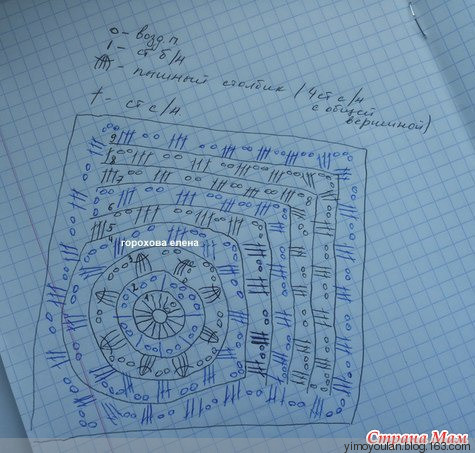 о - возд. п
ι - ст б/н
- пышный столбик (4 ст с/н
с общей
вершиной)
† - ст с/н
9
8
7
8
6
5
4
горохова елена
3
2
1
Страна Мам
yimoyoulan.blog.163.com